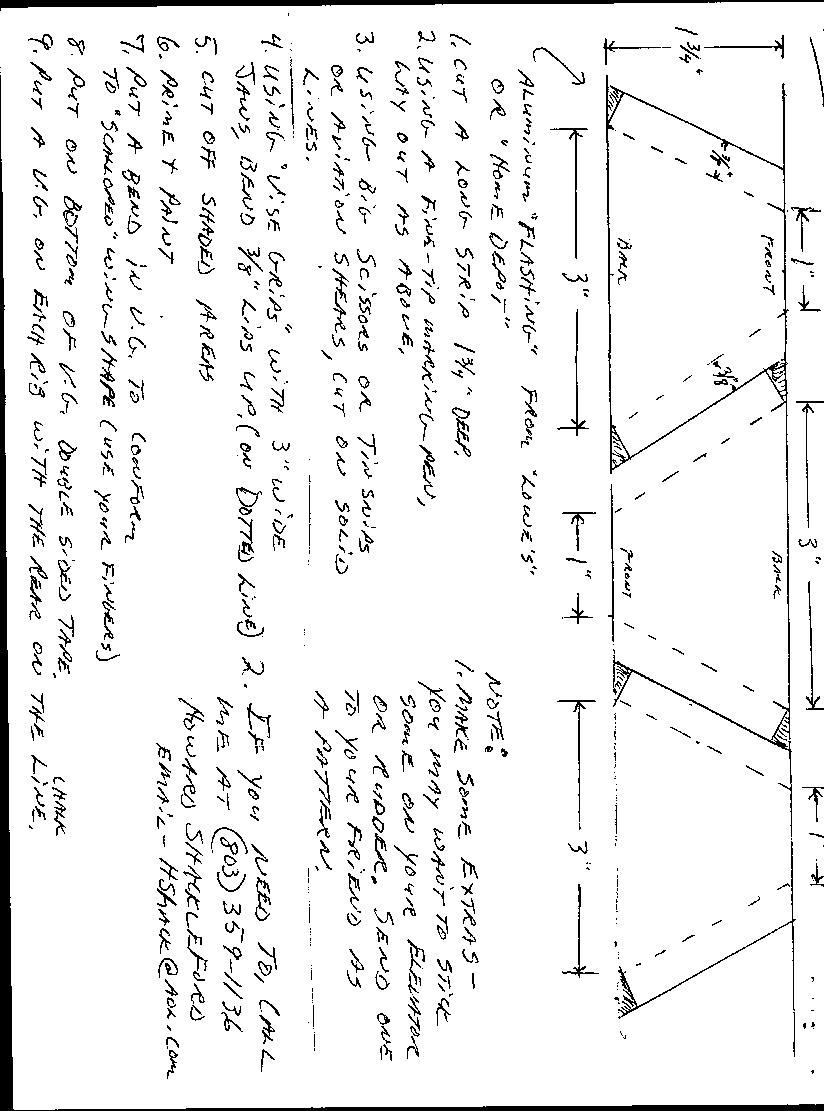 1 3/4"
3/8"
1"
FRONT
BACK
3"
3/8"
3"
BACK
FRONT
1"
3"
1"
ALUMINUM "FLASHING" FROM "LOWE'S"
OR "HOME DEPOT"
1. CUT A LONG STRIP 1 3/4" DEEP.
2. USING A FINE-TIP MARKING PEN,
WAY OUT AS ABOVE.
3. USING BIG SCISSORS OR TINSNIPS
OR AVIATION SHEARS, CUT ON SOLID
LINES.
4. USING "VISE GRIPS" WITH 3" WIDE
JAWS, BEND 3/8" LIPS UP. (ON DOTTED LINE)
5. CUT OFF SHADED AREAS
6. PRIME & PAINT
7. PUT A BEND IN V.G. TO CONFORM
TO "SCALLOPED" WING SHAPE (USE YOUR FINGERS)
8. PUT ON BOTTOM OF V.G. DOUBLE SIDED TAPE.
9. PUT A V.G. ON EACH RIB WITH THE REAR ON THE CHALK LINE.
NOTE:
1. MAKE SOME EXTRAS -
YOU MAY WANT TO STICK
SOME ON YOUR ELEVATOR
OR RUDDER. SEND ONE
TO YOUR FRIEND AS
A PATTERN.
2. IF YOU NEED TO, CALL
ME AT (803) 359-1136
HOWARD SHACKLEFORD
EMAIL - HSHACK@AOL.COM